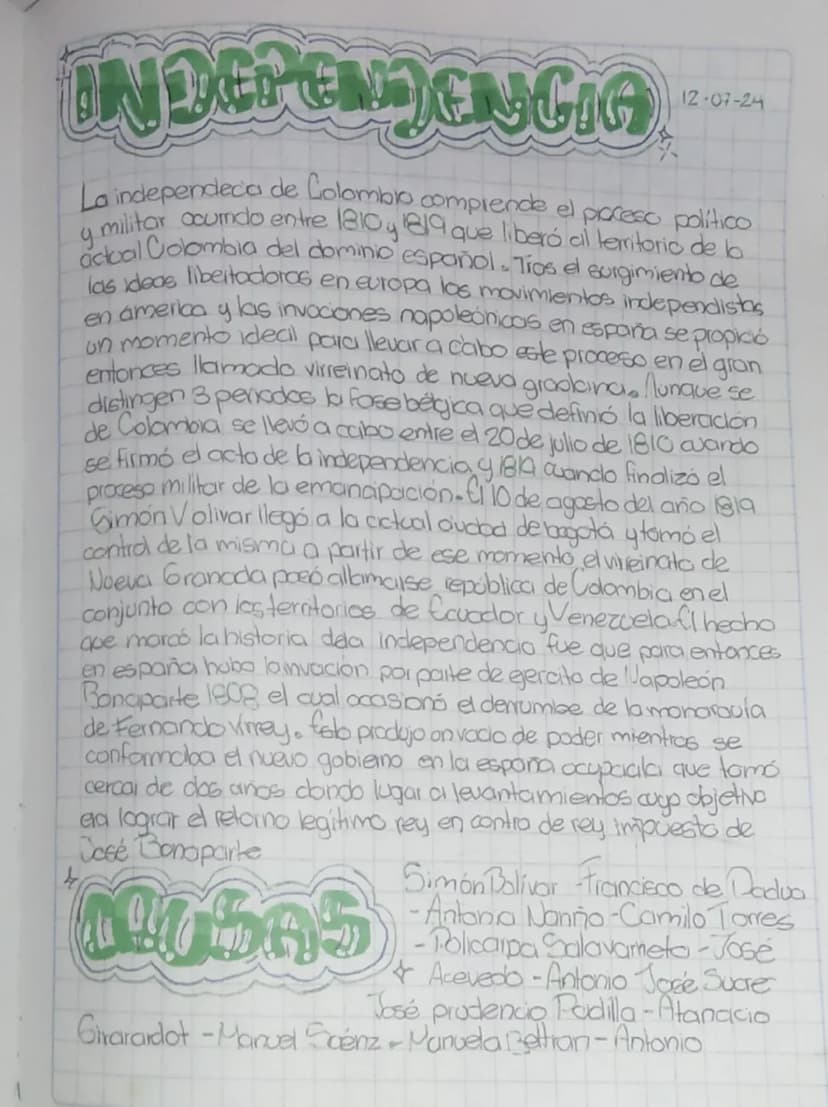 INDEPENDENCIA
12-07-24
La independecia de Colombia comprende el proceso político
y militar ocurrido entre 1810 y 1819 que liberó al territorio de la
actual Colombia del dominio español. Tras el surgimiento de
las ideas libertadoras en europa los movimientos independistas
en america y las invaciones napoleónicas en españa se propició
un momento ideal para llevar a cabo este proceso en el gran
entonces llamado virreinato de nueva granada. Aunque se
distingen 3 periodos la fase bélgica que definió la liberación
de Colombia se llevó a cabo entre el 20 de julio de 1810 cuando
se firmó el acto de la independencia y 1819 cuando finalizó el
proceso militar de la emanapación. El 10 de agosto del año 1819
Simón Volivar llegó a la actual ciudad de bogotá y tomó el
control de la misma a partir de ese momento, el virreinato de
Nueva Granada pasó a llamarse república de Colombia en el
conjunto con los territorios de Ecuador y Venezuela. El hecho
que marcó la historia dela independencia fue que para entonces
en españa hubo la invación por parte de ejercito de Napoleón
Bonaparte 1808 el cual ocasionó el derrumbe de la monarquía
de Fernando Virrey. Esto produjo un vacio de poder mientras se
conformaba el nuevo gobierno en la españa ocupada que tomó
cerca de dos años dando lugar a levantamientos cuyo objetivo
era lograr el retorno legítimo rey en contra de rey impuesto de
José Bonaparte
CAUSAS
Simón Bolivar - Francisco de
- Antonio Nariño - Camilo Torres
- Policarpa Salavarrieta - José
Acevedo - Antonio José Sucre
José prudencio Padilla - Atanacio
Girarardot - Manuel Saénz - Manuela Beltran - Antonio